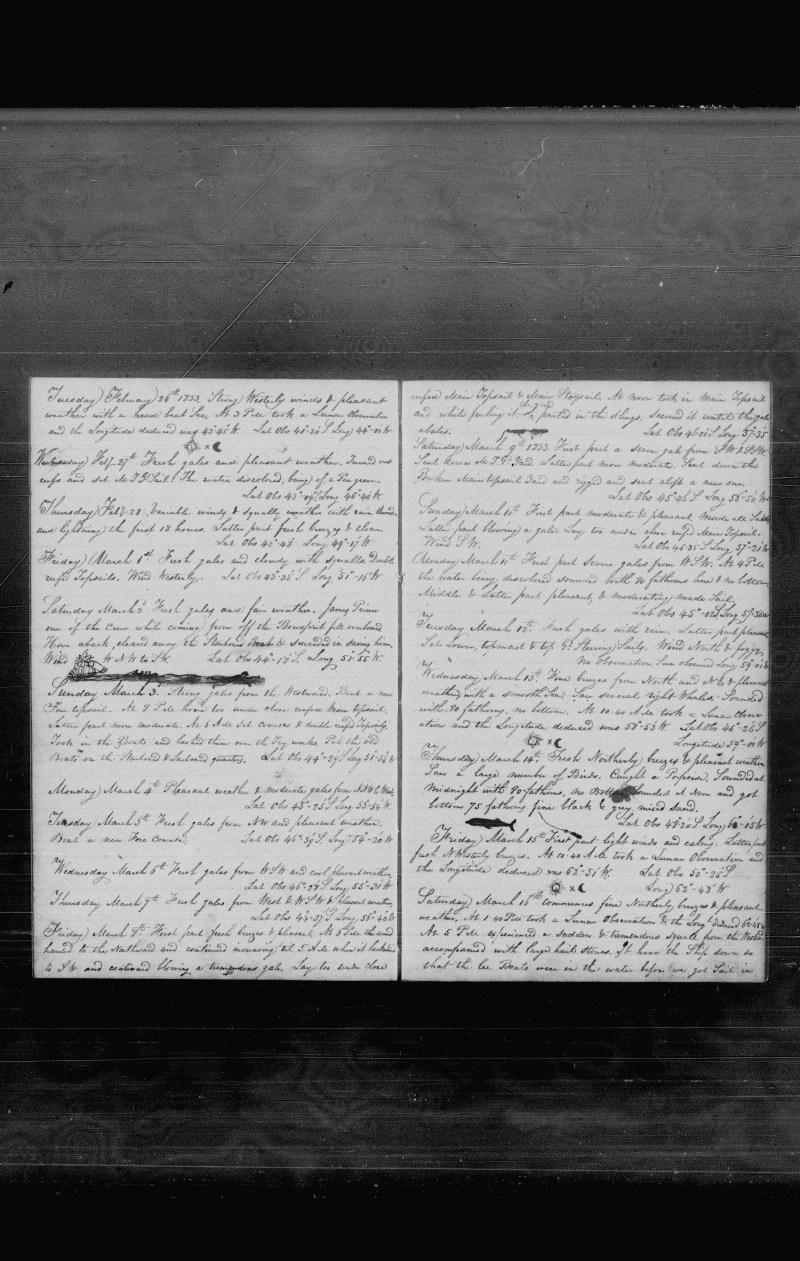 Tuesday) February 26th 1833. Strong Westerly winds & pleasant
weather with a head beat Sea. At 3 P de took a Lunar Observation
and the Longitude deduced was 45-45 W. Lat Obs 41-20 S Long 44-00 W
Wednesday) Feby 27th Fresh gales and pleasant weather. Turned out
reefs and set M.T.G. Sail. The water discolored, being of a Pea green
Lat Obs 43- S, Long 46-40 W.
Thursday) Feby 28. Variable winds & squally weather with rain thunder
and lightning the first 18 hours. Latter part fresh breezes & clear.
Lat Obs 42-43 Long 49-17 W
Friday) March 1st Fresh gales and cloudy with squalls. Double
reefd Topsails. Wind Westerly. Lat Obs 43-35 S Long 51-15 W
Saturday March 2 Fresh gales and fair weather. James Prime
one of the Crew while coming from off the Bowsprit fell overboard
Hove aback, cleared away the Starboard Boat & succeeded in saving him.
Wind W N W to S W. Lat Obs 44-17 S, Long 51-55 W.
Sunday March 3. Strong gales from the Westward. Bent a new
Fore topsail. At 2 P de hove too under close reefed Main topsail.
Latter part more moderate. At 6 A de Set Courses & double reefd Topsails.
Took in the Boats and lashed them over the Try works. Put the old
Boats on the Starboard & Larboard quarters. Lat Obs 44-29 S Long 51-53 W
Monday) March 4th Pleasant weather & moderate gales from N.N.W to West.
Lat Obs 45-25 S Long 53-54 W.
Tuesday) March 5th Fresh gales from NW and pleasant weather.
Bent a new Fore Course. Lat Obs 46-39 S, Long 54-20 W
Wednesday March 6th Fresh gales from W S W and cool pleasant weather
Lat Obs 46-38 S Long 55-31 W
Thursday) March 7th Fresh gales from West & W.S.W & pleasant weather
Lat Obs 44-37 S, Long 56-40 W
Friday) March 8th First part fresh breezes & pleasant. At 5 P de the wind
hauled to the Northward and continued increasing til 5 A de when it backened
to S W and continued blowing a tremendous gale. Lay too under close
reefed Main Topsail & Main Staysail. At noon took in Main Topsail
and while furling it the yard parted in the slings, secured it untill the gale
abates. Lat Obs 46-01 S, Long 57-35
Saturday) March 9th 1833 First part a severe gale from S W & S.S.W.
Sent down M.T.G. Yard. Latter part more moderate. Sent down the
Broken Main topsail Yard and rigged and sent aloft a new one.
Lat Obs 45-46 S Long 56-50 W
Sunday) March 10th First part moderate & pleasant, made all Sail
Latter part blowing a gale. Lay too under close reefd Main Topsail.
Wind S W. Lat Obs 46-35 S, Long 57-21 W
Monday) March 11th First part severe gales from W.S.W. At 4 P de
the water being discolored sounded with 80 fathoms line & no bottom
Middle & Latter part pleasant, & moderating made Sail.
Lat Obs 45-02 S Long 57-30 W
Tuesday March 12th Fresh gales with rain. Latter part pleasant
Set Lower, topmast & top G. Steering Sails. Wind North & foggy,
No Observation Sun obscured Long 59-01 W
Wednesday) March 13th Fine breezes from North and N.E & pleasant
weather, with a smooth Sea. Saw several right Whales. Sounded
with 80 fathoms, no bottom. At 10-40 A de took a Lunar Observ-
ation and the Longitude deduced was 58-53 W. Lat Obs 46-26 S
Longitude 59-00 W
Thursday) March 14th Fresh Northerly breezes & pleasant weather
Saw a large number of Birds. Caught a Porpoise. Sounded at
midnight with 80 fathoms, no Bottom sounded at Noon and got
bottom 75 fathoms fine black & grey mixed sand.
Lat Obs 48-20 S Long 60-05 W
Friday) March 15th First part light winds and calms. Latter part
fresh N. Westerly breezes. At 10-40 A de took a Lunar Observation and
the Longitude deduced was 62-51 W. Lat Obs 50-25 S
Long 62-43 W
Saturday) March 16th commences fine Northerly breezes & pleasant
weather. At 1-40 P de took a Lunar Observation & the Longd deduced
At 5 P de experienced a sudden & tremendous squall from the Westwd
accompanied with large hail stones. It hove the Ship down so
that the lee Boats were in the water before we got Sail in